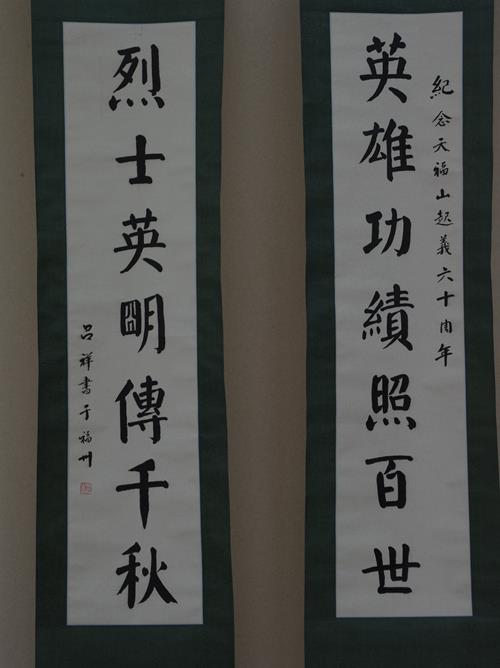 紀念天福山起義六十周年
英雄功績照百世
烈士英明傳千秋
吕祥書于福州